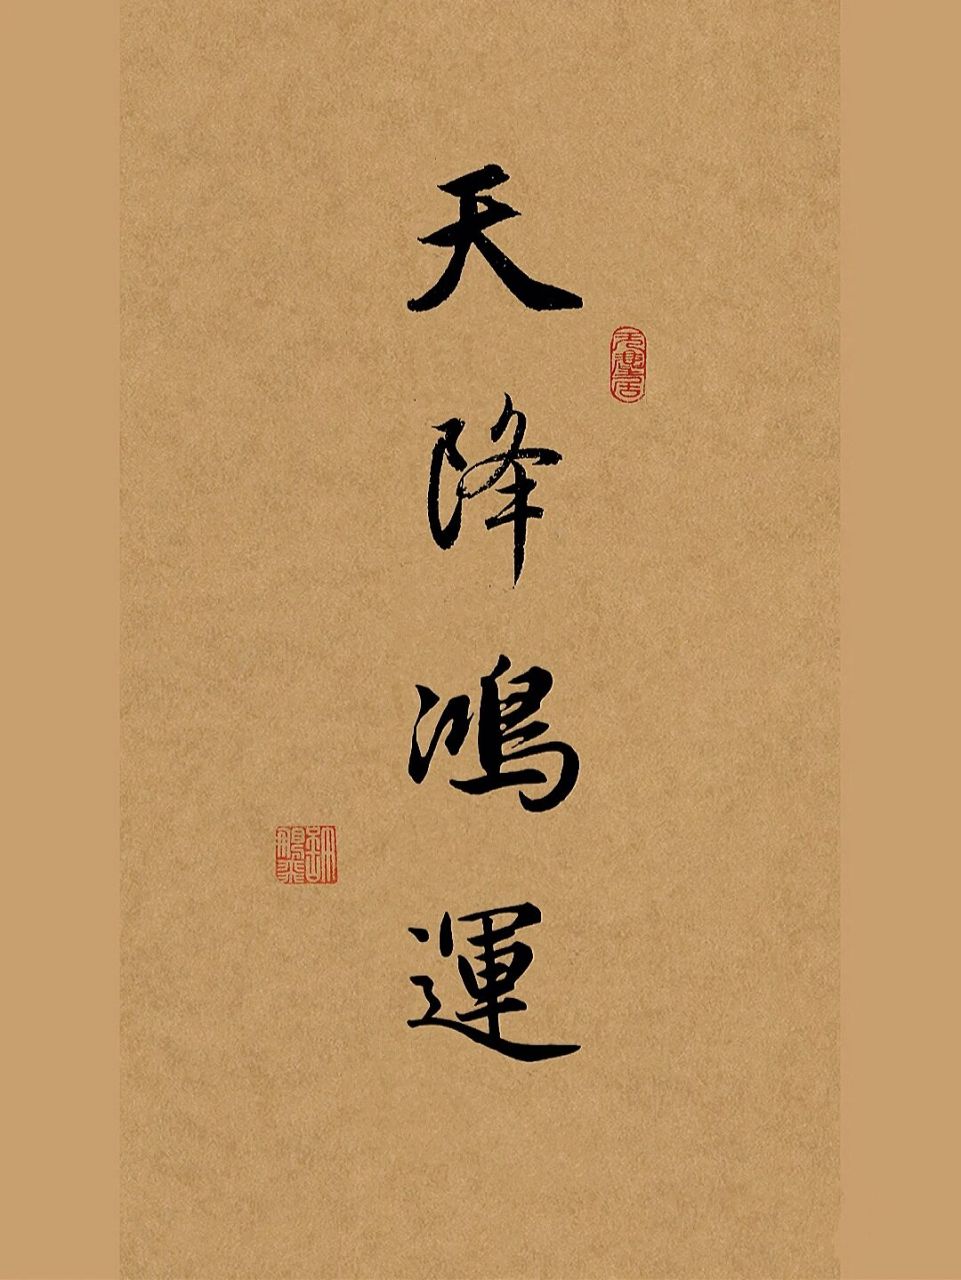 天降鴻運